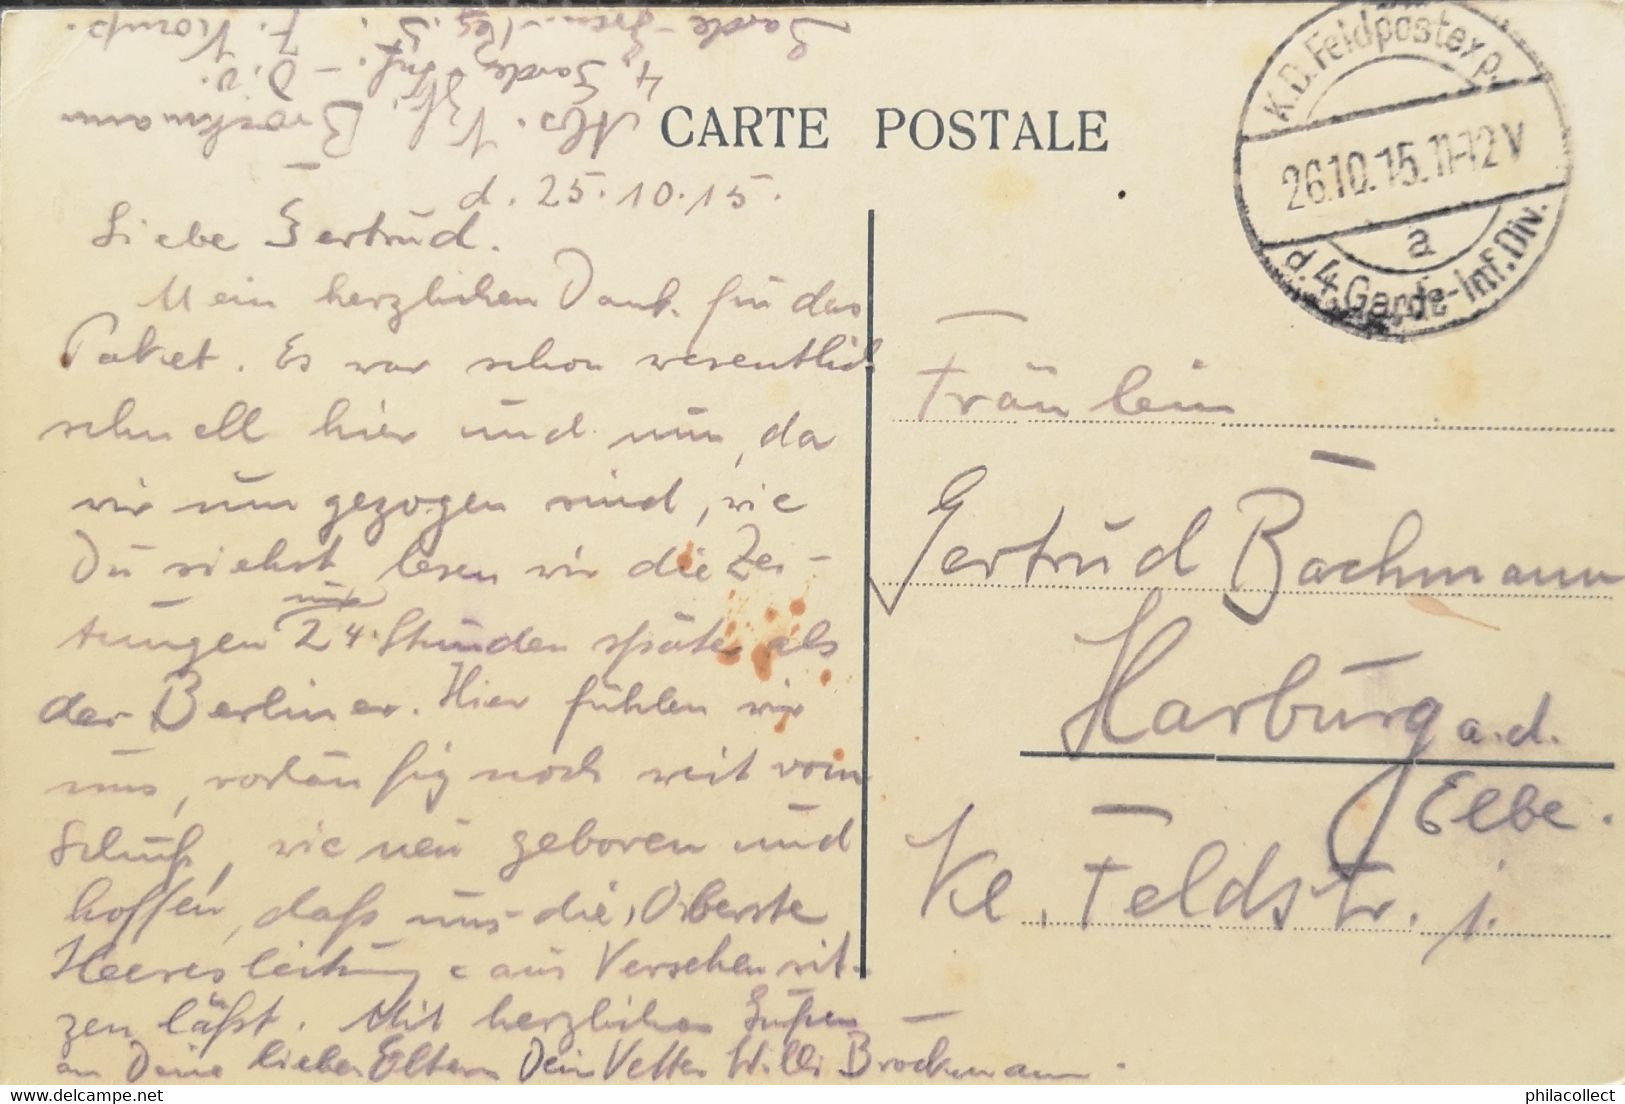 Abs. Vzf. Brockmann
4. Garde Inf. - D. V.
Garde-Gren. Reg. 5. 7. Komp.
CARTE POSTALE
K.D. Feldpostexp.
26.10.15. 11-12 V
a
d. 4. Garde-Inf. Div.
d. 25.10.15.
Liebe Gertrud.
Mein herzlichen Dank für das
Paket. Es war schon wesentlich
schnell hier und nun, da
wir umgezogen sind, wie
Du siehst, lesen wir die Zei-
tungen nur 24 Stunden später als
der Berliner. Hier fühlen wir
uns, vorläufig noch weit vom
Schuß, wie neu geboren und
hoffen, daß uns die Oberste
Heeresleitung aus Versehen sit-
zen läßt. Mit herzlichen Grüßen
an Deine lieben Eltern Dein Vetter Willi Brockmann.
Fräulein
Gertrud Bachmann
Harburg a.d.
Elbe.
Kl. Feldstr. 1.
philacollect.delcampe.net
philacollect